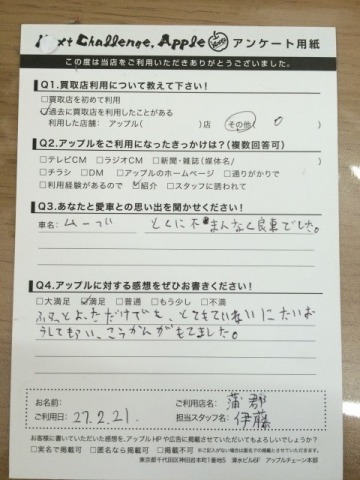 Next Challenge. Apple アンケート用紙
この度は当店をご利用いただきありがとうございました。
Q1.買取店利用について教えて下さい!
□買取店を初めて利用
☑過去に買取店を利用したことがある
利用した店舗: アップル( )店 その他( 0 )
Q2.アップルをご利用になったきっかけは?(複数回答可)
□テレビCM □ラジオCM □新聞・雑誌(媒体名/ )
□チラシ □DM □アップルのホームページ □通りがかりで
□利用経験があるので ☑紹介 □スタッフに誘われて
Q3.あなたと愛車との思い出を聞かせください!
車名: ムーヴ とくに不まんなく良車でした。
Q4.アップルに対する感想をぜひお書きください!
□大満足 ☑満足 □普通 □もう少し □不満
ふらっとよっただけでも、とてもていねいにたいお
うしてもらい、こうかんがもてました。
お名前: ご利用店名: 蒲郡
ご利用日: 27.2.21. 担当スタッフ名: 伊藤
お客様に書いていただいた感想を、アップルHPや広告に掲載させていただいてもよろしいでしょうか?
□実名で掲載可 □匿名なら掲載可 □掲載不可 ※ご記入がない場合は匿名での掲載とさせていただきます。
東京都千代田区神田岩本町1番地5 清水ビル6F アップルチェーン本部